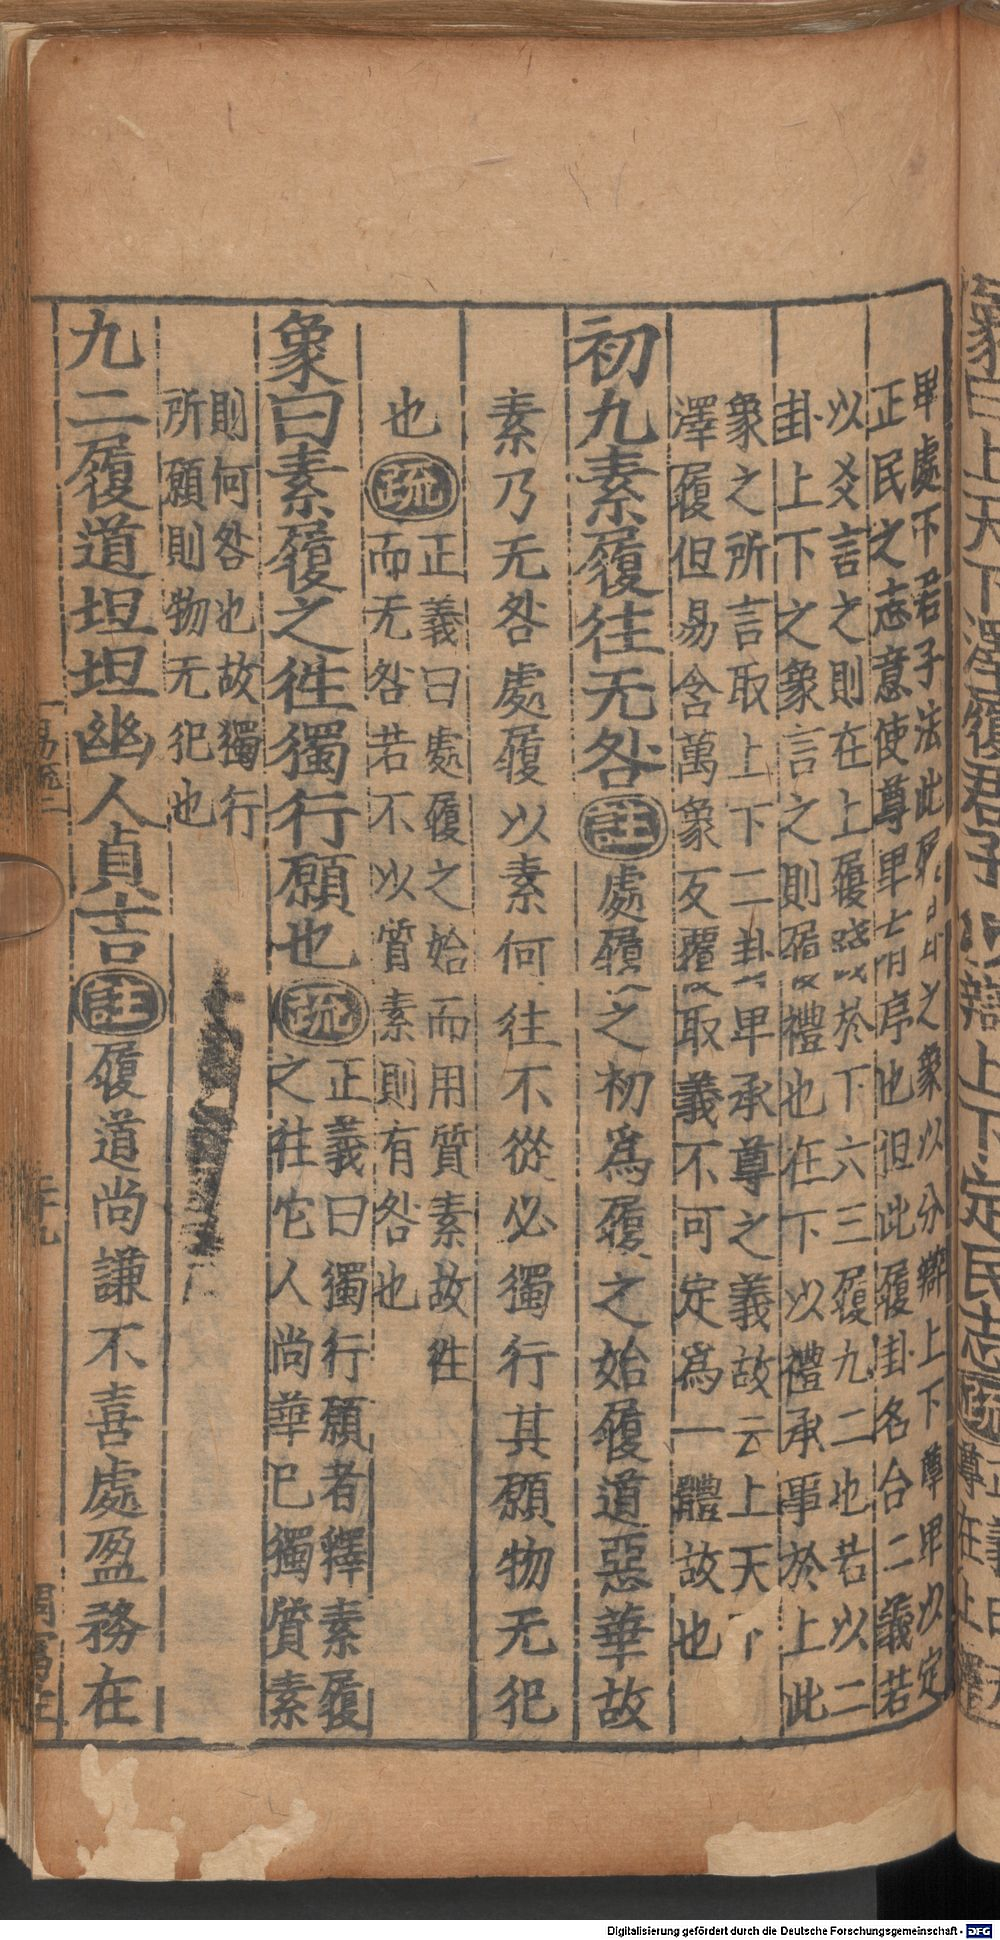 象曰上天下澤履君子以辯上下定民志疏正義曰天
尊在上澤
卑處下君子法此履卦之象以分辯上下尊卑以定
正民之志意使尊卑有序也但此履卦名合二義若
以爻言之則在上履踐於下六三履九二也若以二
卦上下之象言之則履禮也在下以禮承事於上此
象之所言取上下二卦卑承尊之義故云上天下
澤履但易含萬象反覆取義不可定爲一體故也
初九素履往无咎註處履之初爲履之始履道惡華故
素乃无咎處履以素何往不從必獨行其願物无犯
也疏正義曰處履之始而用質素故往
而无咎若不以質素則有咎也
象曰素履之徃獨行願也疏正義曰獨行願者釋素履
之往它人尚華已獨質素
則何咎也故獨行
所願則物无犯也
九二履道坦坦幽人貞吉註履道尚謙不喜處盈務在
易疏二
二十九
Digitalisierung gefördert durch die Deutsche Forschungsgemeinschaft - DFG